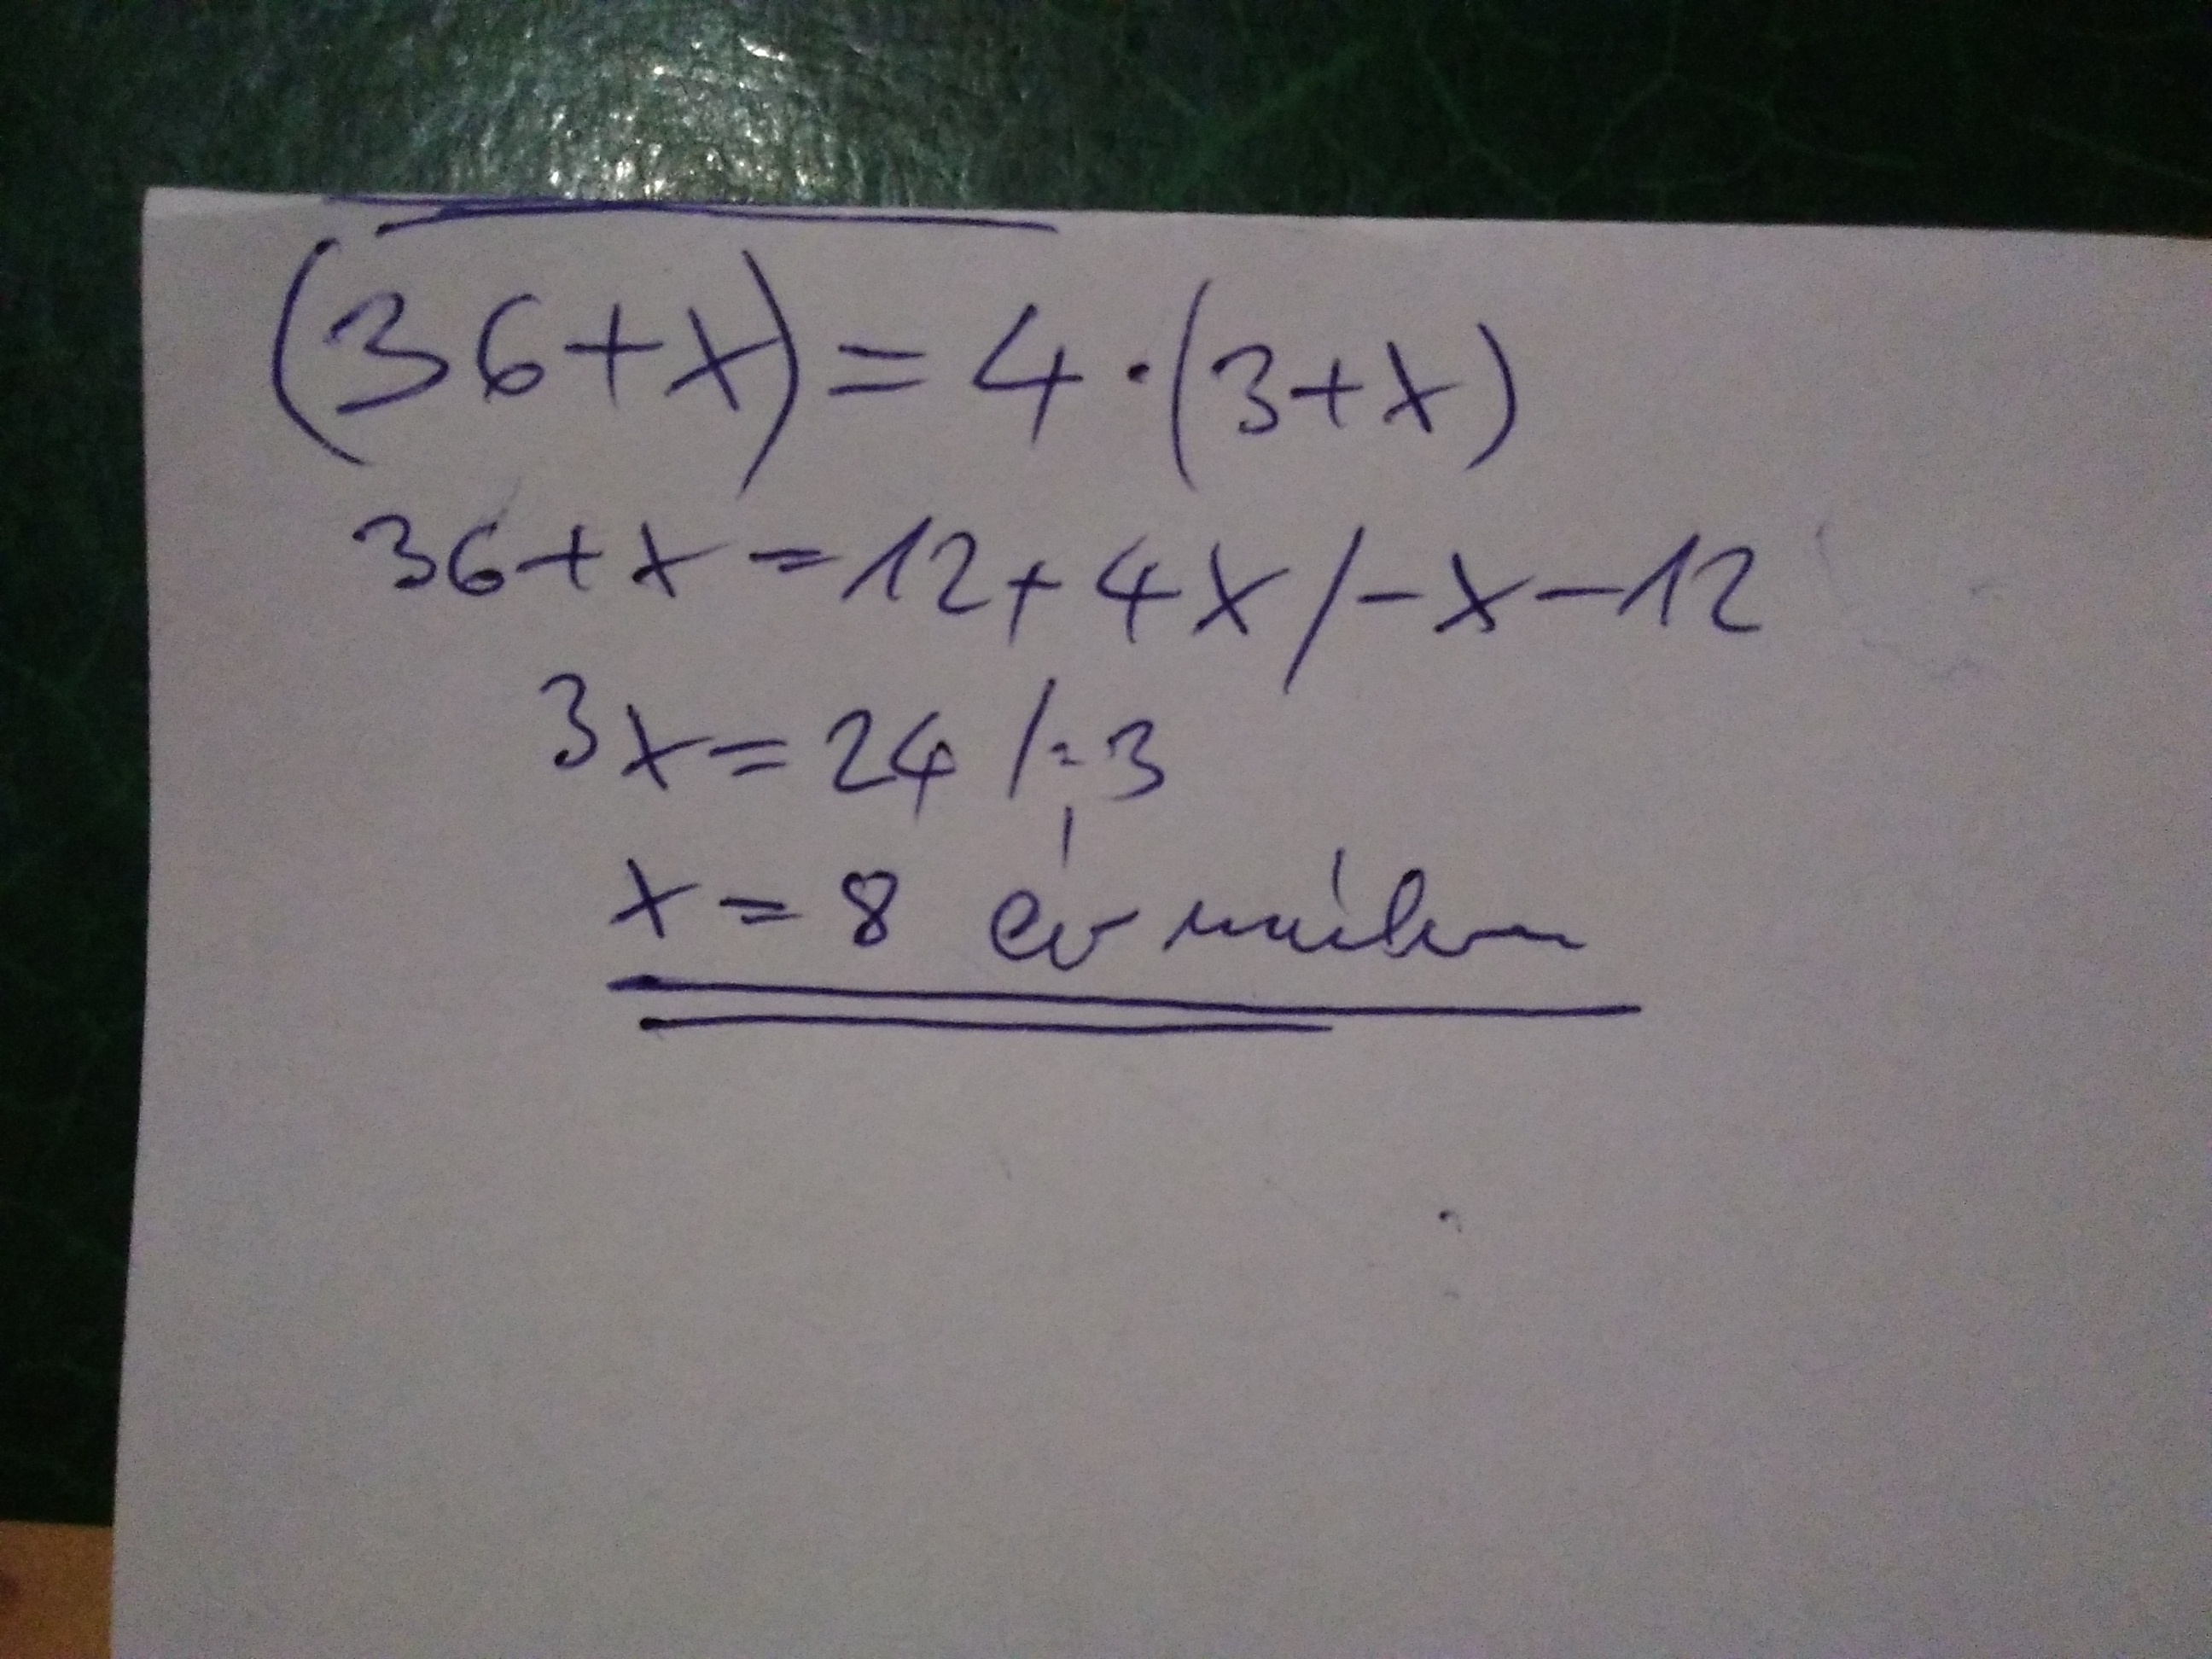 (36+x)=4·(3+x)
36+x=12+4x/-x-12
3x=24 /:3
x=8 év múlva